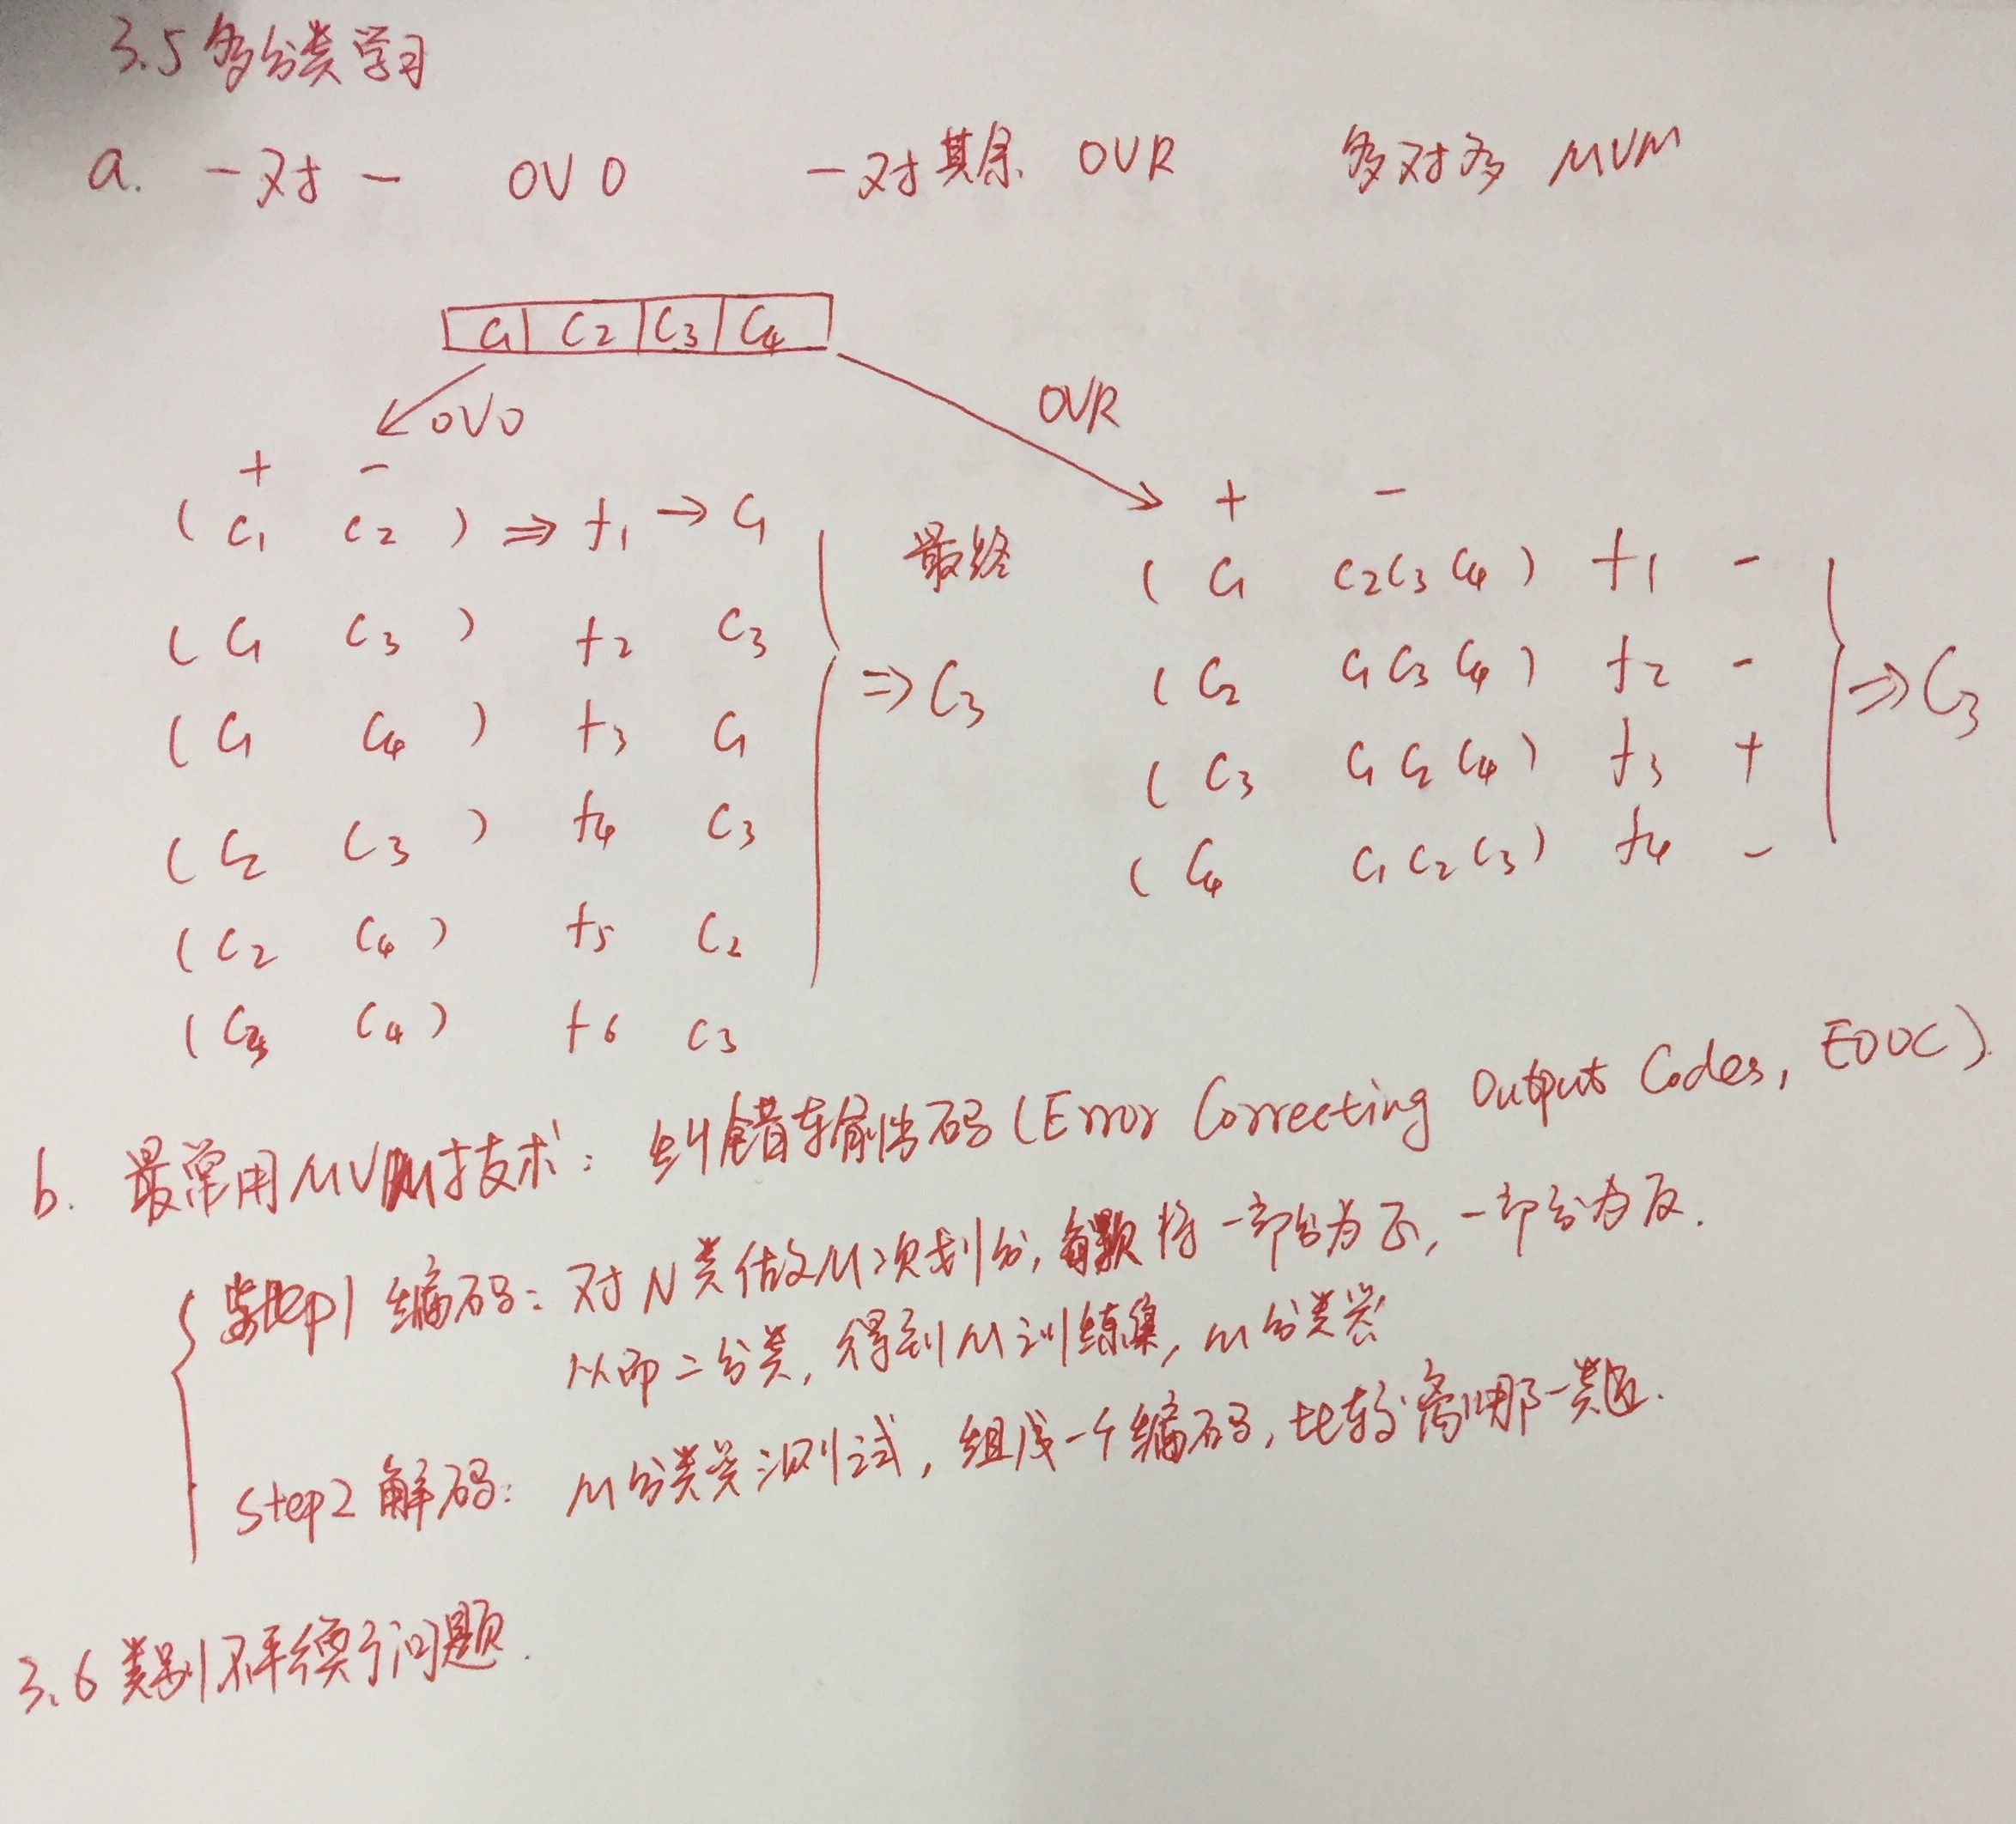 3.5 多分类学习
a. 一对一 OVO 一对其余 OVR 多对多 MVM
C1 C2 C3 C4
OVO
+ -
(C1 C2) ⇒ f1 → C1
(C1 C3) f2 C3
(C1 C4) f3 C1
(C2 C3) f4 C3
(C2 C4) f5 C2
(C3 C4) f6 C3
最终
⇒ C3
OVR
+ -
(C1 C2C3C4) f1 -
(C2 C1C3C4) f2 -
(C3 C1C2C4) f3 +
(C4 C1C2C3) f4 -
⇒ C3
b. 最常用MVM技术: 纠错输出码(Error Correcting Output Codes, EOOC).
step1 编码: 对N类做M次划分, 每次将一部分为正, 一部分为反.
从而二分类, 得到M训练集, M分类器
step2 解码: M分类器测试, 组成一个编码, 比较离哪一类近.
3.6 类别不平衡问题.